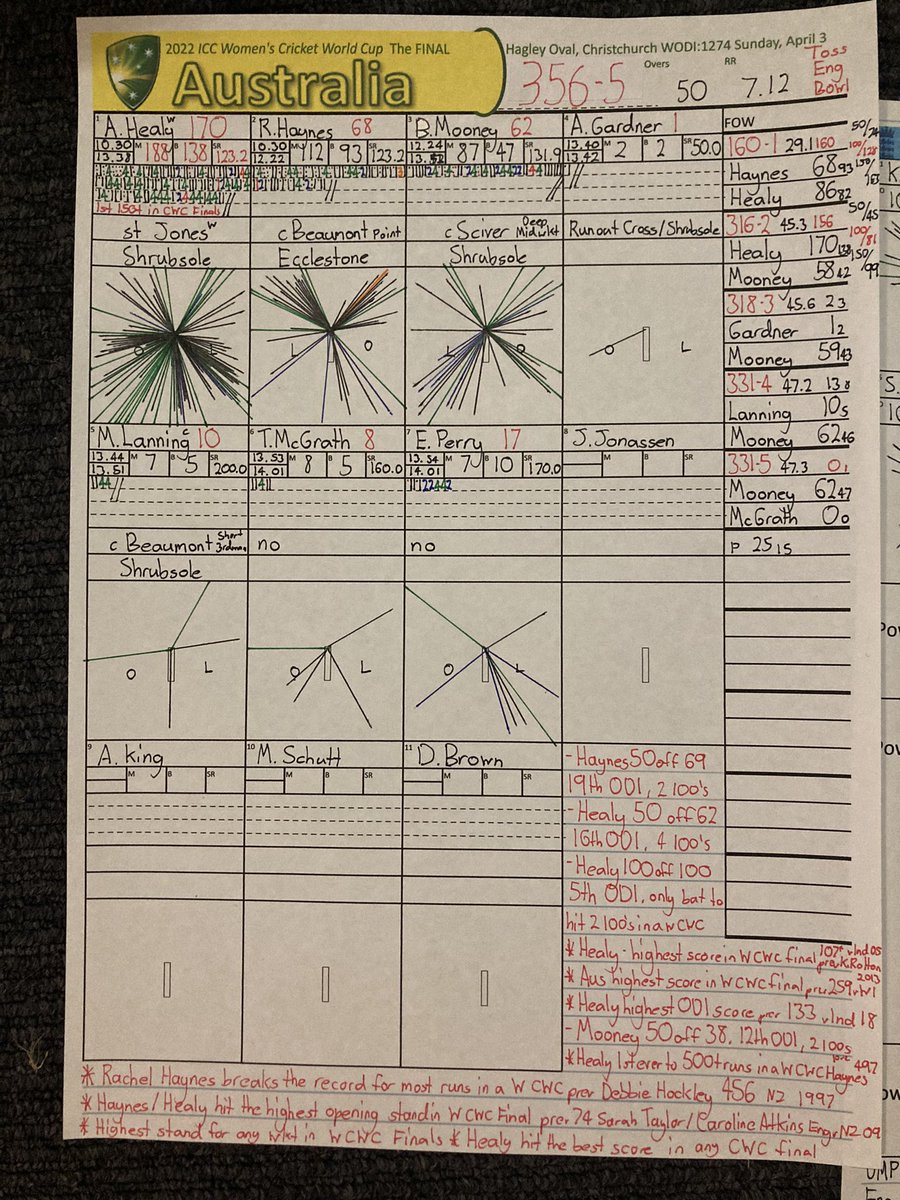 2022 ICC Women's Cricket World Cup The FINAL
Australia
Hagley Oval, Christchurch WODI:1274 Sunday, April 3
356-5 Overs 50 RR 7.12
Toss
Eng
Bowl
1 A.Healy w 170
10.30 13.38 M 188 B 138 SR 123.2
1st 150+ in CWC Finals
st Jones w
Shrubsole
2 R.Haynes 68
10.30 12.22 M 112 B 93 SR 123.2
c Beaumont Point
Ecclestone
L O
3 B.Mooney 62
12.24 M 87 B 47 SR 131.9
c Sciver Deep Midwkt
Shrubsole
L O
4 A.Gardner 1
13.40 13.42 M 2 B 2 SR 50.0
Run out Cross/Shrubsole
L
FOW
50/74
160-1 29.1 160
100/128
Haynes 68 93
Healy 86 82
50/45
316-2 45.3 156
100/81
Healy 170 138
150/99
Mooney 58 42
318-3 45.6 2 3
Gardner 1 2
Mooney 59 43
331-4 47.2 13 8
Lanning 10 5
Mooney 62 46
331-5 47.3 0 1
Mooney 62 47
McGrath 0 0
P 25 15
5 M.Lanning c 10
13.44 13.51 M 7 B 5 SR 200.0
c Beaumont Short 3rdman
Shrubsole
O L
6 T.McGrath 8
13.53 14.01 M 8 B 5 SR 160.0
no
O L
7 E.Perry 17
13.54 14.01 M 7 B 10 SR 170.0
no
O L
8 J.Jonassen
M B SR
9 A.King
M B SR
10 M.Schutt
M B SR
11 D.Brown
M B SR
- Haynes 50 off 69
19th ODI, 2 100's
- Healy 50 off 62
16th ODI, 4 100's
- Healy 100 off 100
5th ODI, only bat to
hit 2 100's in a WCWC
* Healy - highest score in WCWC final prev K Rolton 107* v Ind 05
* Aus highest score in WCWC final prev 259 v WI 2013
* Healy highest ODI score prev 133 v Ind 18
- Mooney 50 off 38, 12th ODI, 2 100s
* Healy 1st ever to 500+ runs in a WCWC prev 497 Haynes
* Rachel Haynes breaks the record for most runs in a W CWC prev Debbie Hockley 456 NZ 1997
* Haynes/Healy hit the highest opening stand in WCWC Final prev 74 Sarah Taylor/Caroline Atkins Eng v NZ 09
* Highest stand for any wkt in WCWC Finals * Healy hit the best score in any CWC final
UMP